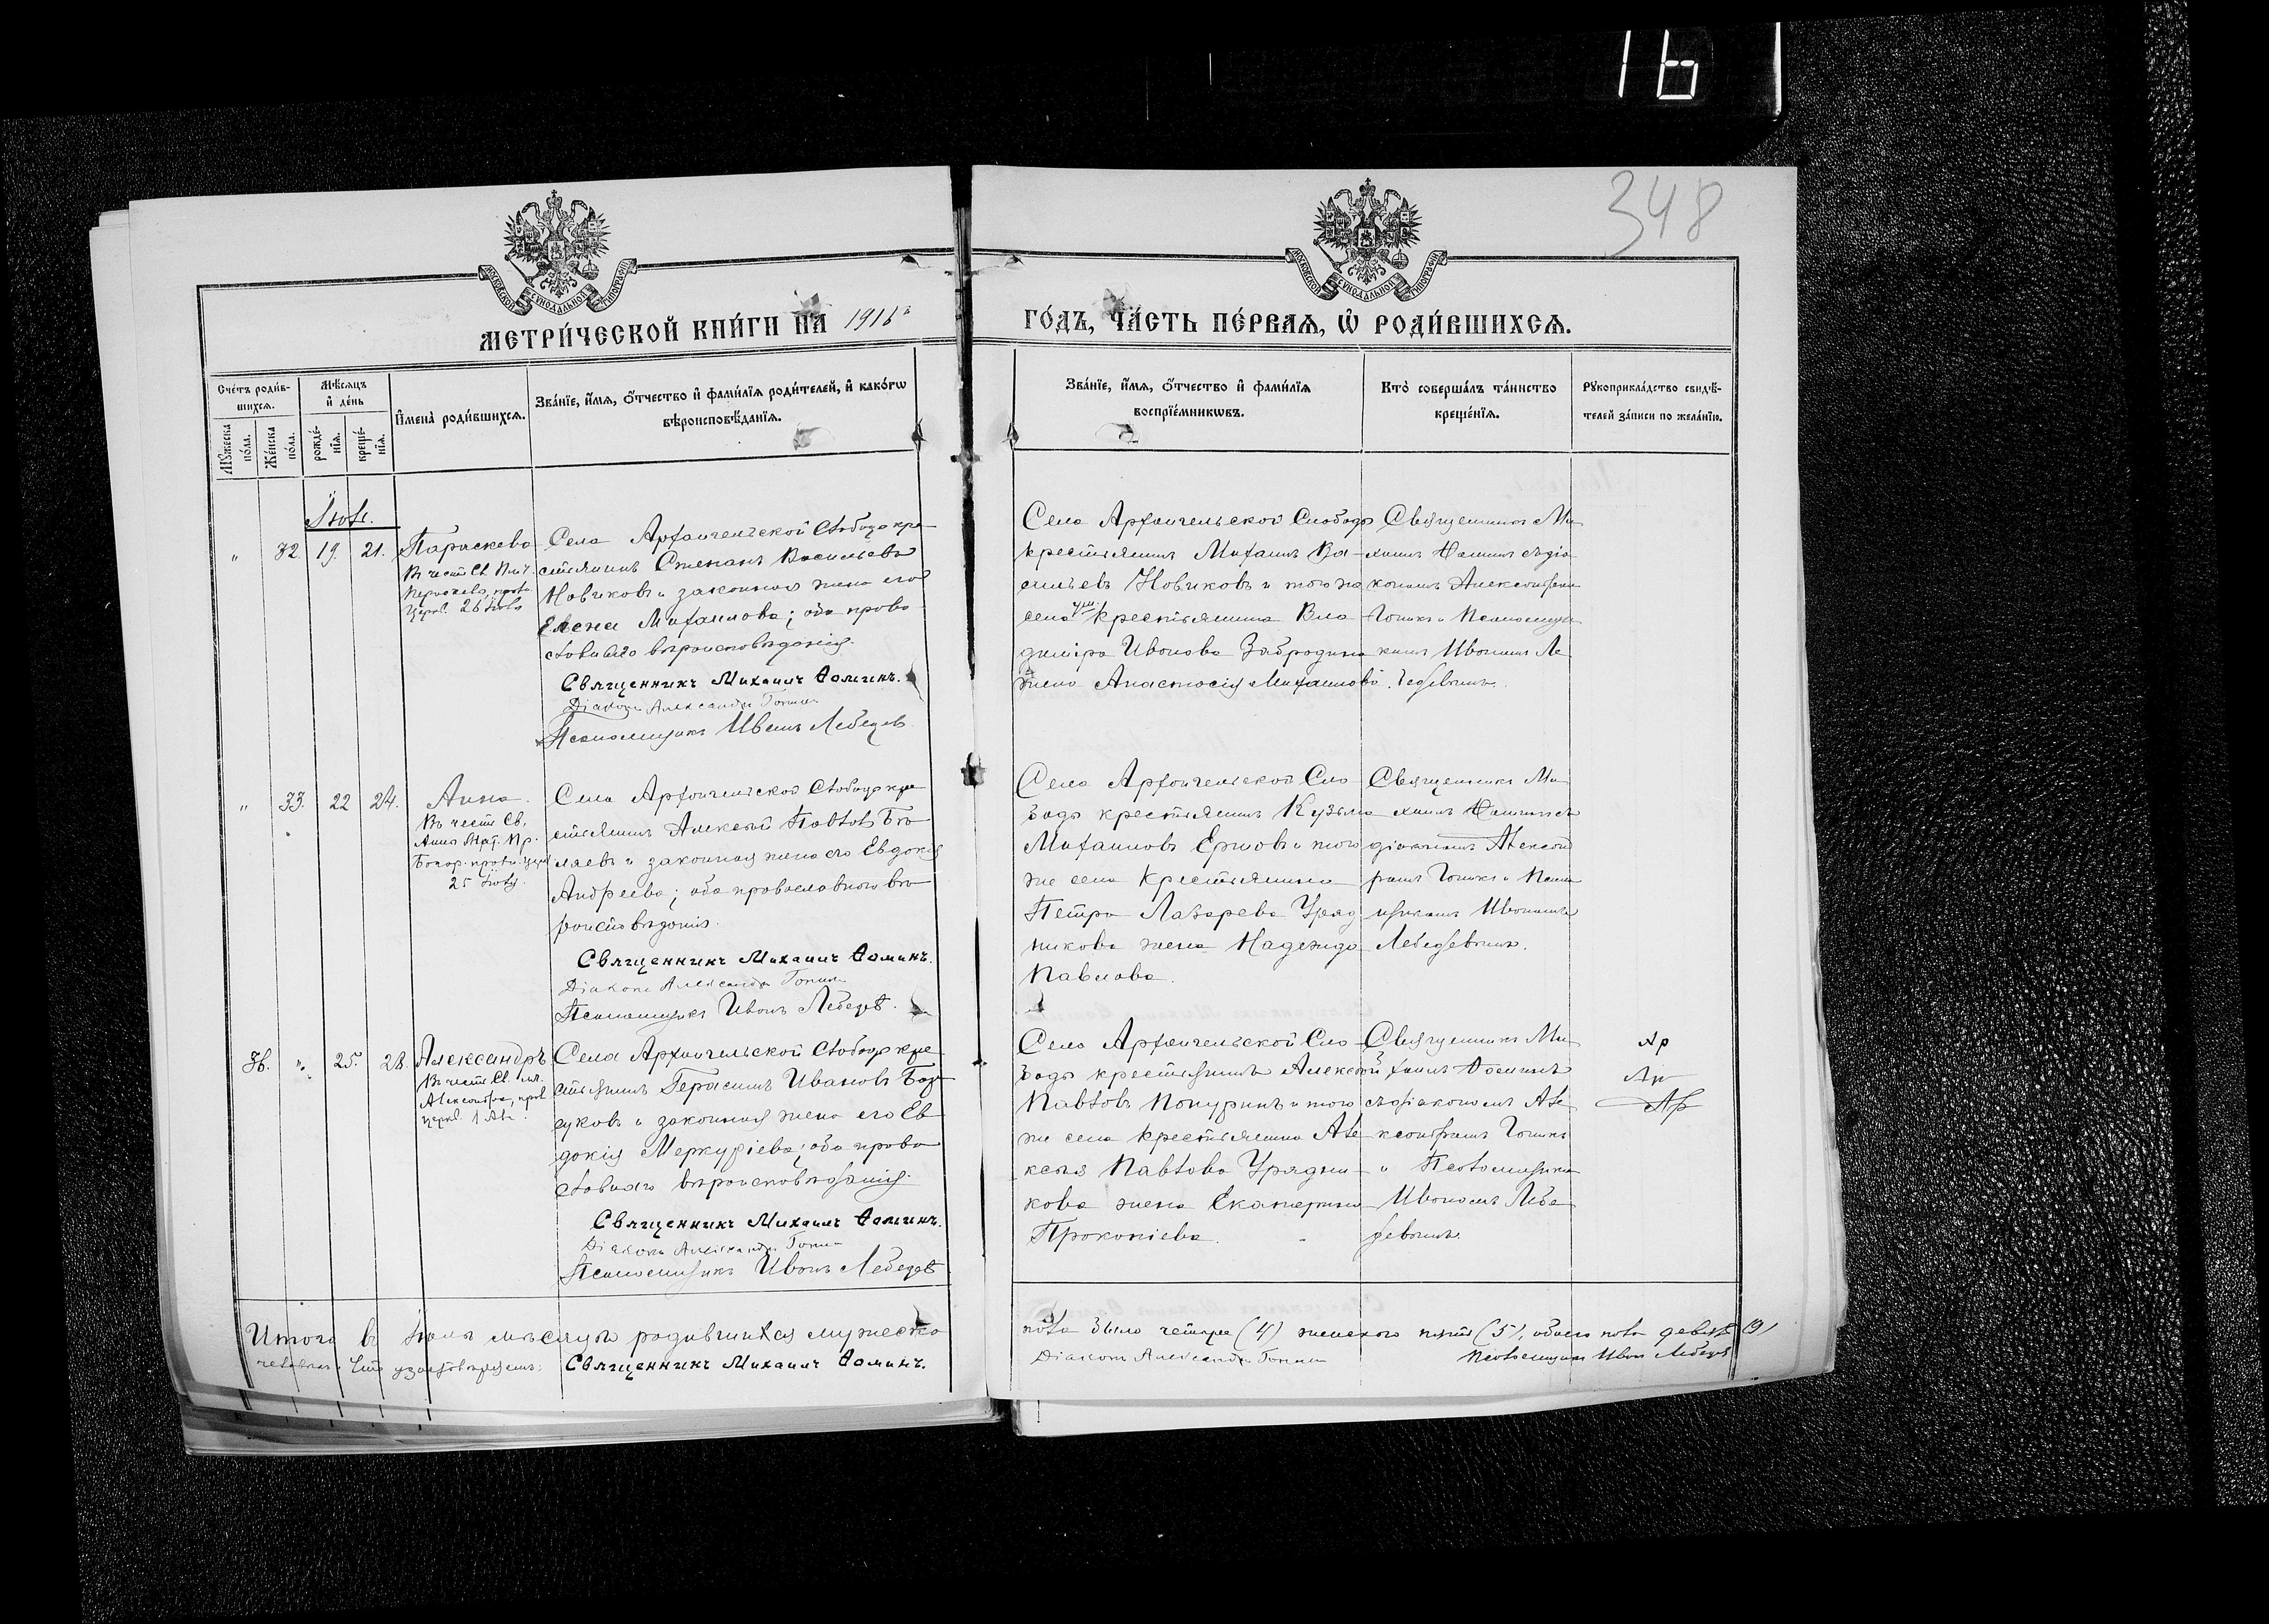 16
348
МОСКОВСКОЙ СУНОДАЛЬНОЙ ТИПОГРАФІИ
МОСКОВСКОЙ СУНОДАЛЬНОЙ ТИПОГРАФІИ
МЕТРИ́ЧЕСКОЙ КНИ́ГИ НА 1916 г
ГО́ДЪ, ЧА́СТЬ ПЕ́РВАЯ, Ѽ РОДИ́ВШИХСѦ.
Сче́тъ роди́в-
шихсѧ.
Мѣ́сѧцъ
и҆ де́нь
Мꙋ́жеска
по́ла.
Же́нска
по́ла.
рожде́-
нїѧ.
креще́-
нїѧ.
И҆мена̀ роди́вшихсѧ.
Зва́нїе, и҆́мѧ, ѻ҆́тчество и҆ фами́лїѧ роди́телей, и҆ како́гѡ
вѣроисповѣ́данїѧ.
Зва́нїе, и҆́мѧ, ѻ҆́тчество и҆ фами́лїѧ
воспрїе́мникѡвъ.
Кто̀ соверша́лъ та́инство
креще́нїѧ.
Рꙋкоприкла́дство свидѣ́-
телей за́писи по жела́нїю.
Іюль.
" 32. 19. 21. Параскева
Въ честь Св. Прмч.
Параскевы, празд.
церк. 26 Іюля
Села Архангельской Слободы кре-
стьянинъ Степанъ Васильевъ
Новиковъ и законная жена его
Елена Михаилова; оба право-
славнаго вѣроисповѣданія.
Священникъ Михаилъ Ѳоминъ.
Діаконъ Александръ
Псаломщикъ Иванъ Лебедевъ
Села Архангельской Слободы
крестьянинъ Михаилъ Ва-
сильевъ Новиковъ и того же
села крестьянина Вла-
диміра Иванова Забродина
жена Анастасія Михаилова.
Священникъ Ми-
хаилъ Ѳоминъ съ діа-
кономъ Александромъ
и Псаломщи-
комъ Иваномъ Ле-
бедевымъ.
" 33. 22 24. Анна.
Въ честь Св.
Анны Мат. Пр.
Богор. празд. церк
25 Іюля.
Села Архангельской Слободы кре-
стьянинъ Алексѣй Павловъ Бѣ-
ляевъ и законная жена его Евдокія
Андреева; оба православнаго вѣ-
роисповѣданія.
Священникъ Михаилъ Ѳоминъ.
Діаконъ Александръ
Псаломщикъ Иванъ Лебедевъ.
Села Архангельской Сло-
боды крестьянинъ Кузьма
Михаиловъ Ершовъ и того
же села крестьянина
Петра Лазарева Уряд-
никова жена Надежда
Павлова.
Священникъ Ми-
хаилъ Ѳоминъ съ
діакономъ Алексан-
дромъ и Псалом-
щикомъ Иваномъ
Лебедевымъ.
36. " 25. 28. Александръ
Въ честь Св. мч.
Александра, празд.
церкв. 1 Авг.
Села Архангельской Слободы кре-
стьянинъ Герасимъ Ивановъ
и законная жена его Ев-
докія Меркуріева; оба право-
славнаго вѣроисповѣданія.
Священникъ Михаилъ Ѳоминъ.
Діаконъ Александръ
Псаломщикъ Иванъ Лебедевъ
Села Архангельской Сло-
боды крестьянинъ Алексѣй
Павловъ Попуринъ и того
же села крестьянина Але-
ксѣя Павлова Урядни-
кова жена Екатерина
Прокопіева.
Священникъ Ми-
хаилъ Ѳоминъ
съ діакономъ Але-
ксандромъ
и Псаломщикомъ
Иваномъ Лебе-
девымъ.
Итого въ Іюлѣ мѣсяцѣ родившихся мужеска
пола было четыре (4) женского пять (5), обоего пола девять (9)
человѣкъ. Что удостовѣряемъ: Священникъ Михаилъ Ѳоминъ.
Діаконъ Александръ
Псаломщикъ Иванъ Лебедевъ